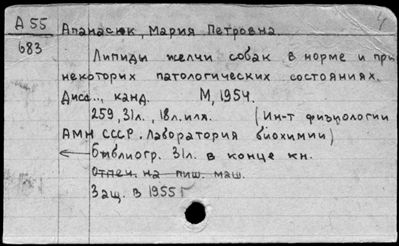 А 55
683
4
Апанасюк, Мария Петровна.
Липиды желчи собак в норме и при
некоторих патологических состояниях.
Дисс.., канд. М, 1954.
259, 31л., 18л.илл. (Ин-т физиологии
АМН СССР. Лаборатория биохимии)
Библиогр. 31л. в конце кн.
Отпеч. на пиш. маш.
Защ. в 1955 г